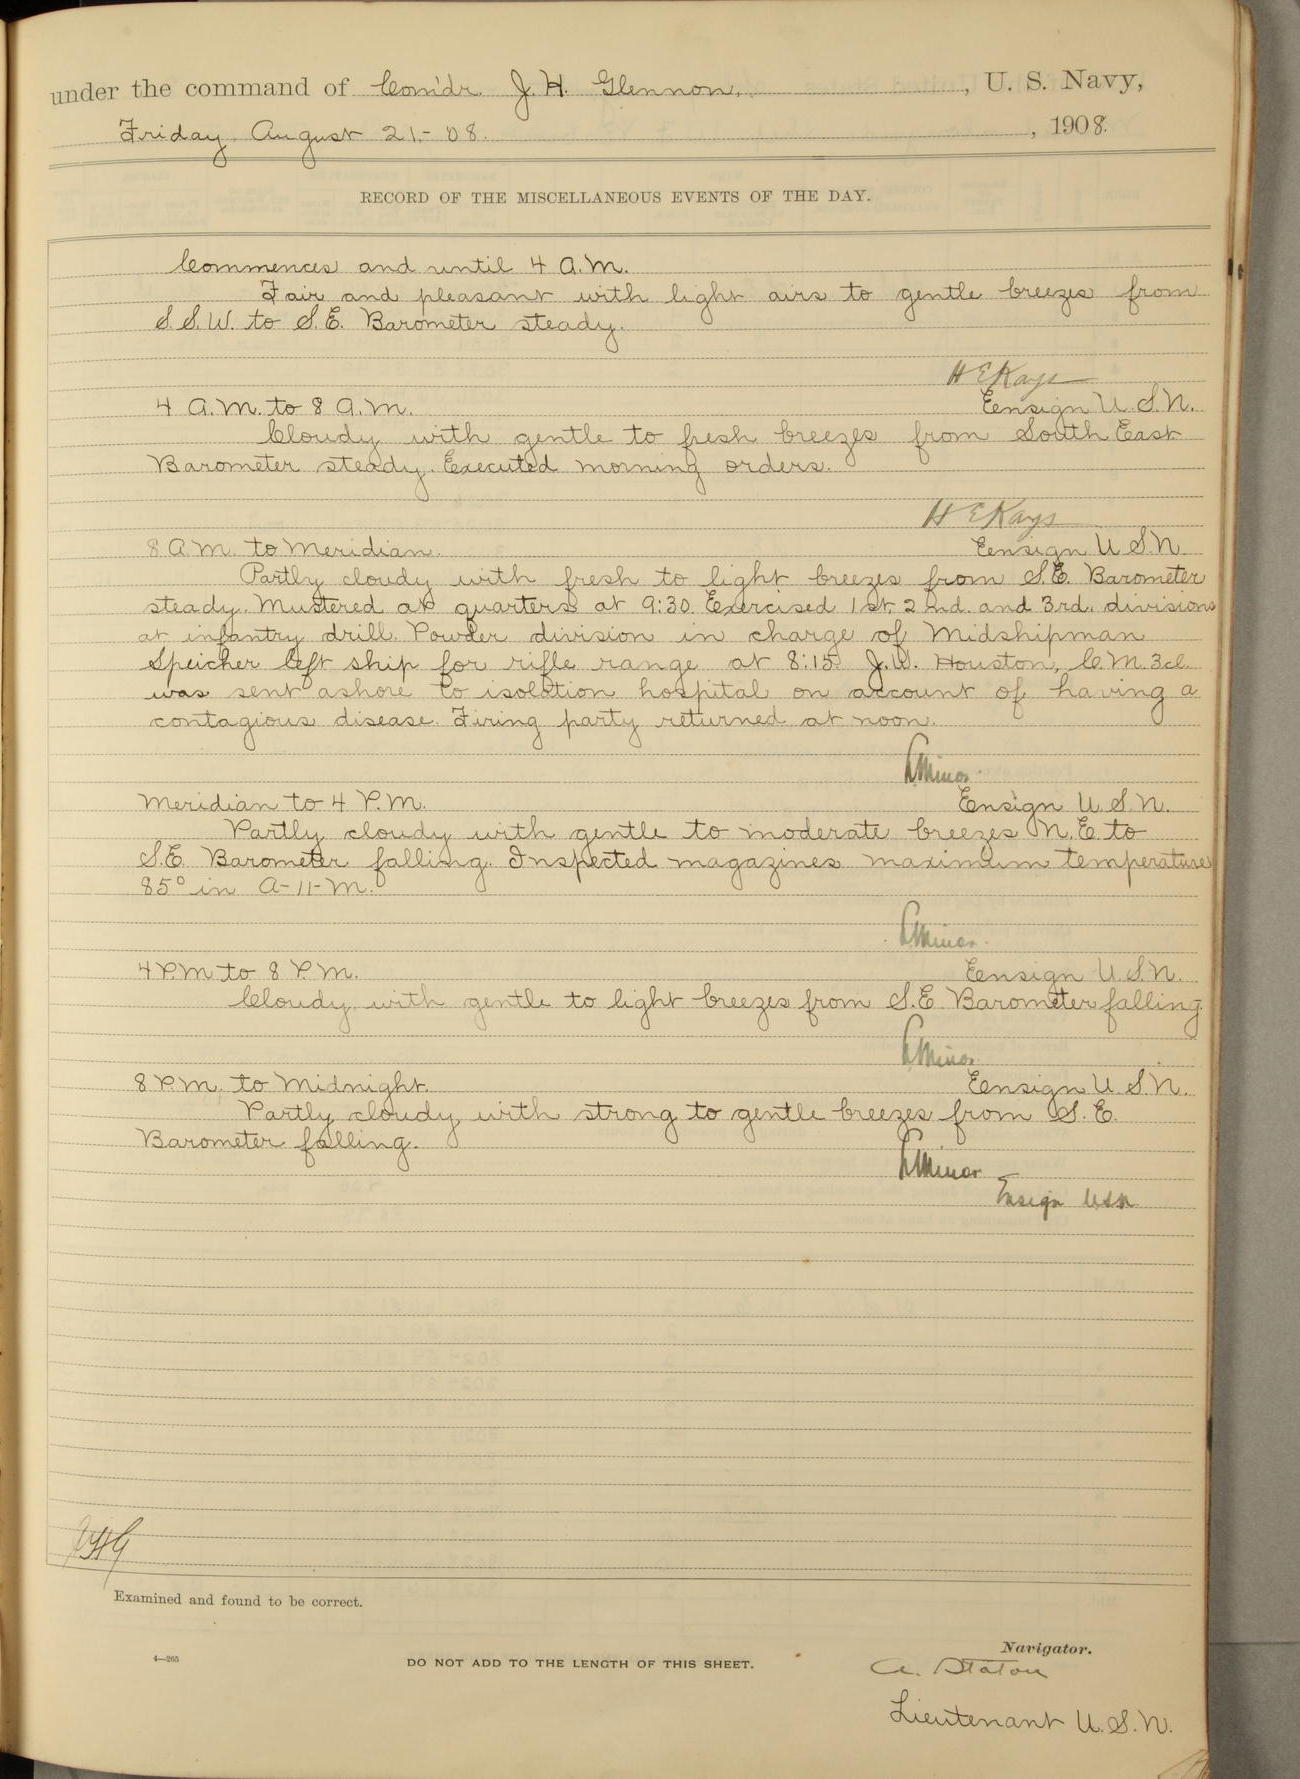 under the command of Com'dr. J. H. Glennon, , U. S. Navy,
Friday August 21.-08. , 1908.
RECORD OF THE MISCELLANEOUS EVENTS OF THE DAY.
Commences and until 4 A.M.
Fair and pleasant with light airs to gentle breezes from
S.S.W. to S.E. Barometer steady.
H E Kays
4 A.M. to 8 A.M. Eensign U.S.N.
Cloudy with gentle to fresh breezes from South East
Barometer steady. Executed morning orders.
H E Kays
8 A.M. to Meridian. Eensign U.S.N.
Partly cloudy with fresh to light breezes from S.E. Barometer
steady. Mustered at quarters at 9:30. Exercised 1st. 2nd. and 3rd. divisions
at infantry drill. Powder division in charge of Midshipman
Speicher left ship for rifle range at 8:15. J.W. Houston, C.M. 3cl.
was sent ashore to isolation hospital on account of having a
contagious disease. Firing party returned at noon.
L Minor
Meridian to 4 P.M. Ensign U.S.N.
Partly cloudy with gentle to moderate breezes N.E. to
S.E. Barometer falling. Inspected magazines maximum temperature
85° in A-11-M.
L Minor
4 P.M to 8 P.M. Eensign U.S.N.
Cloudy with gentle to light breezes from S.E. Barometer falling.
L Minor
8 P.M. to Midnight. Eensign U.S.N.
Partly cloudy with strong to gentle breezes from S.E.
Barometer falling.
L Minor
Ensign USN
JHG
Examined and found to be correct.
Navigator.
4—265 DO NOT ADD TO THE LENGTH OF THIS SHEET.
A. Staton
Lieutenant U.S.N.